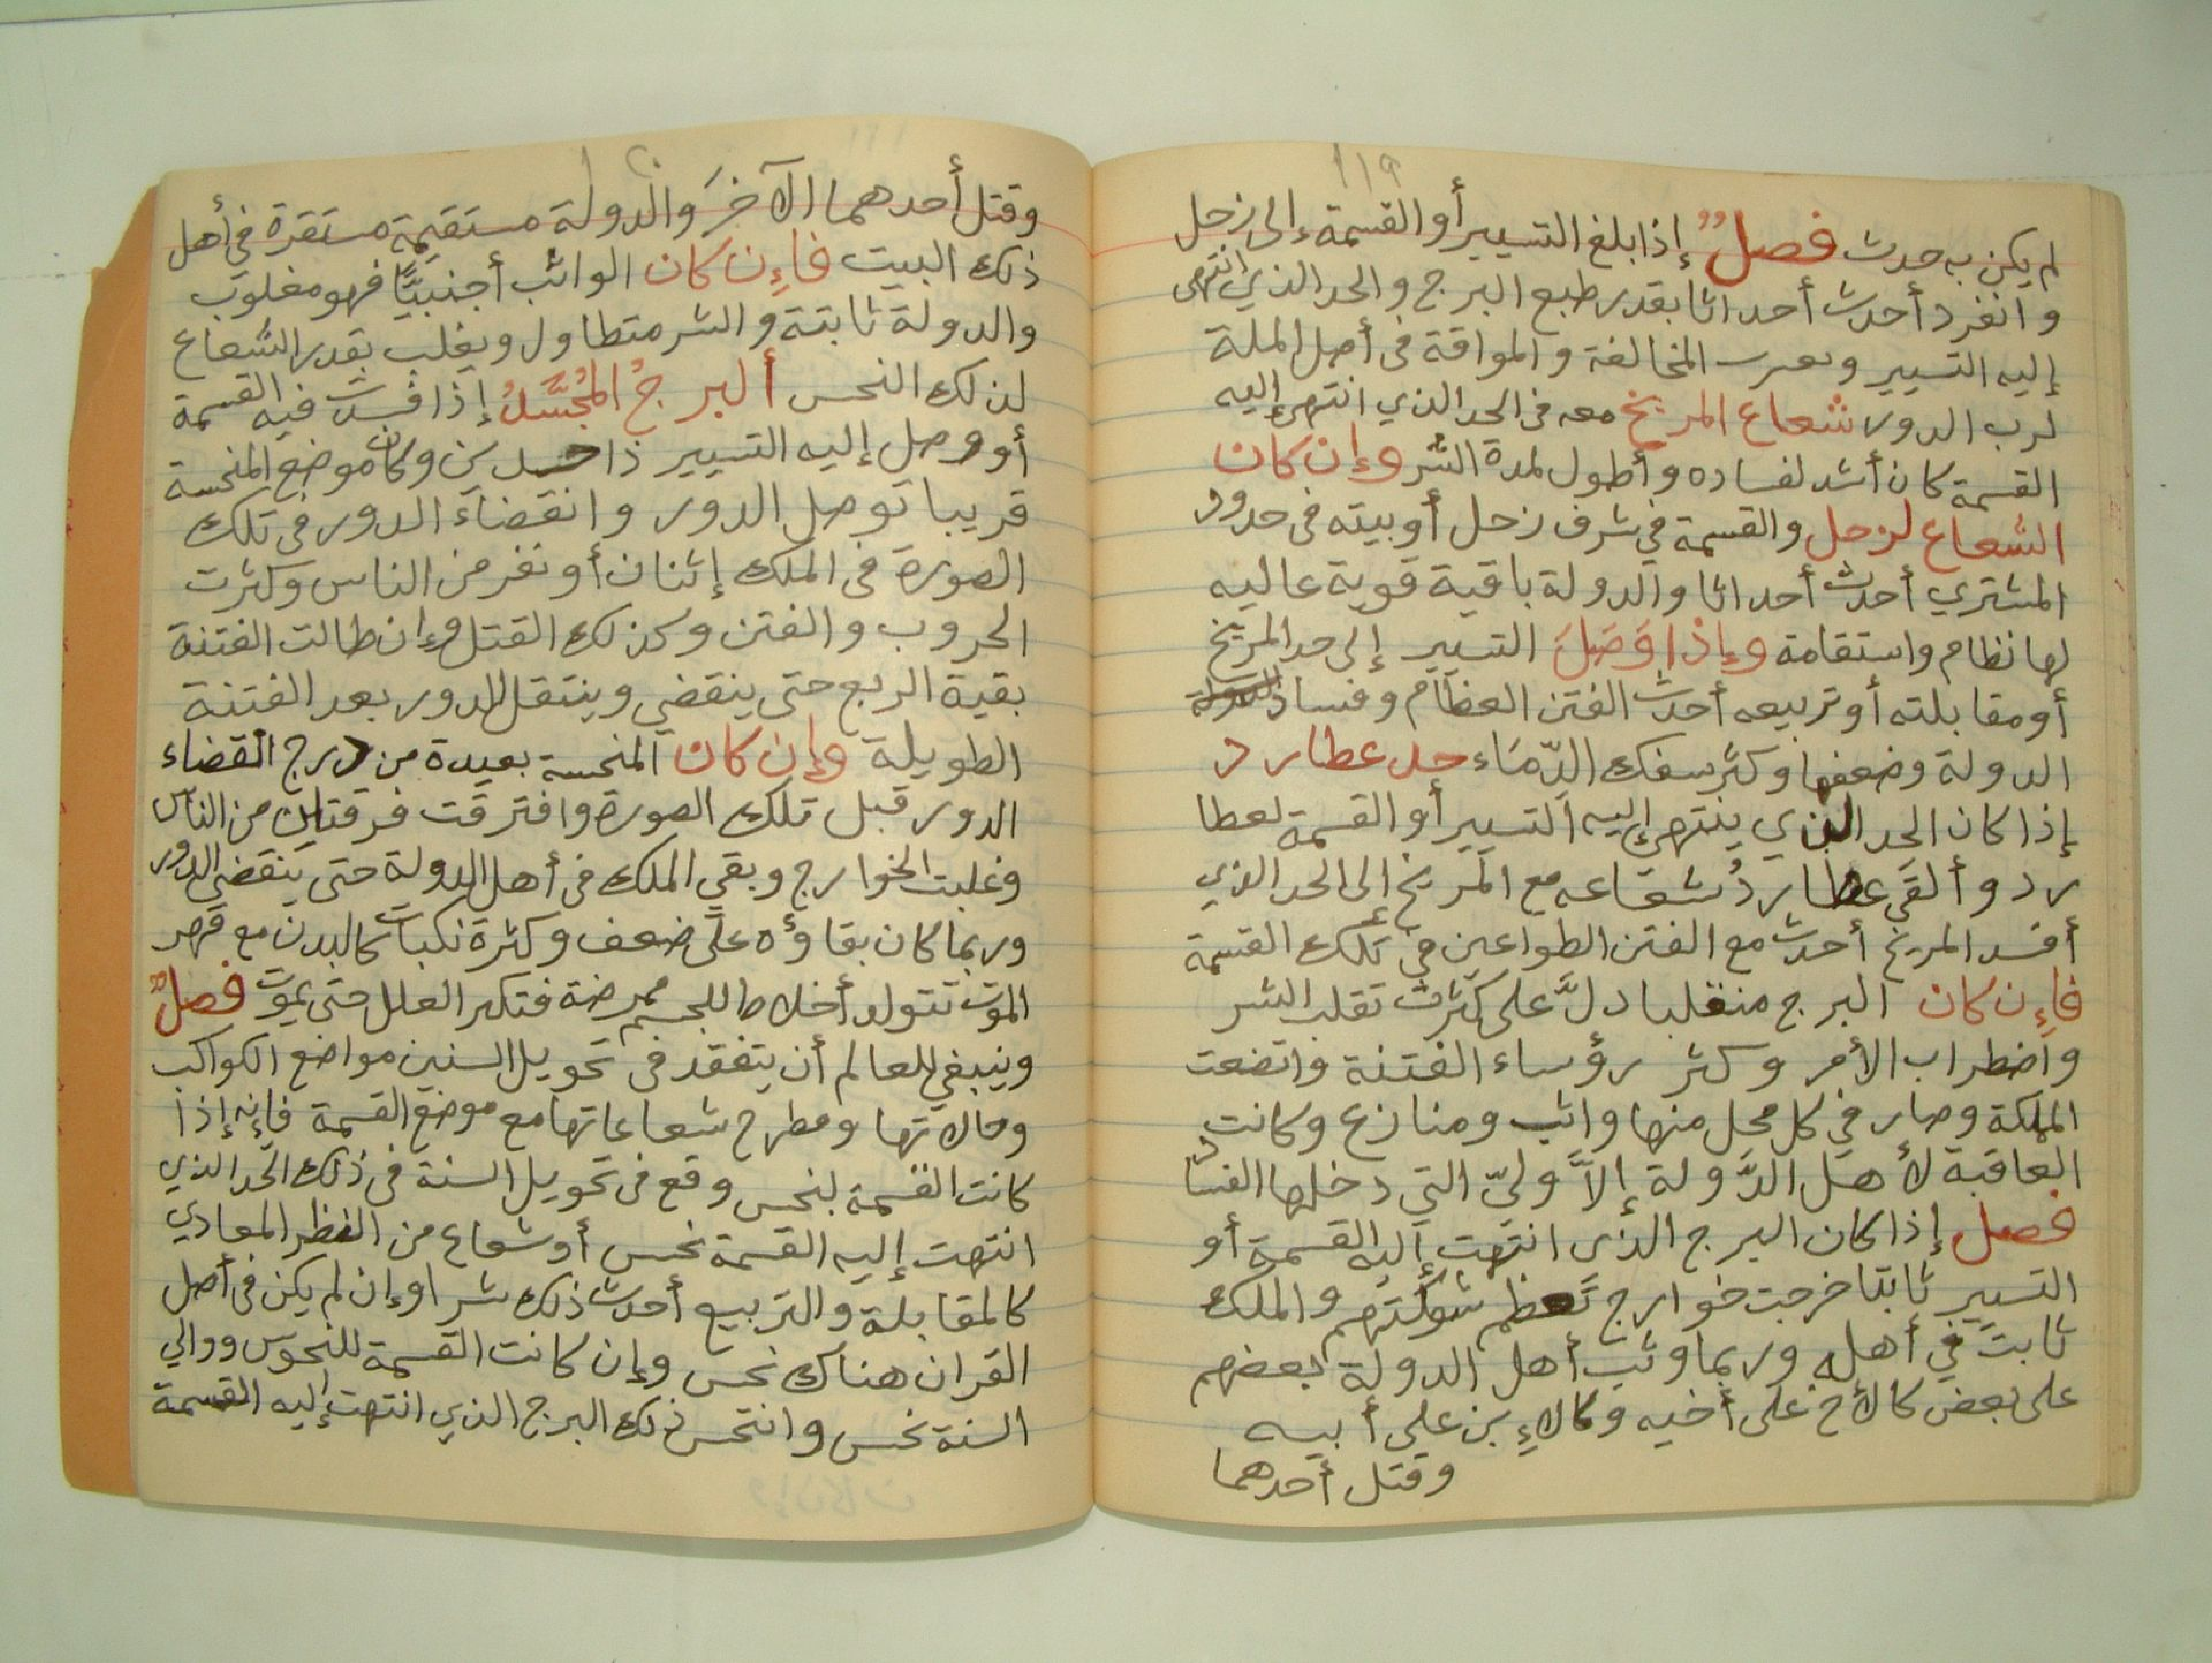 ١١٩
لم يكن به حدث فصلٌ إذا بلغ التسيير أو القسمة إلى زحل
وانفرد أحدث أحداثا بقدر طبع البرج والحد الذي انتهى
إليه التسيير و المخالفة والمواقة فى أصل الملة
لرب الدور شعاع المريخ معه فى الحد الذي انتهى إليه
القسمة كان أشد لفساده وأطول لمدة الشر وإن كان
الشعاع لزحل والقسمة في شرف زحل أو بيته فى حدود
المشتري أحدث أحداثا والدولة باقية قوية عاليه
لها نظام واستقامة وإذا وَصَلَ التسيير إلى حد المريخ
أو مقابلته أو تربيعه أحدث الفتن العظام وفساد
الدولة وضعفها وكثر سفك الدّمَاء حد عطارد
إذا كان الحد الذي ينتهي إليه التسيير أو القسمة لعطا
رد وألقى عطاردُ شعاعه مع المريخ إلى الحد الذي
أفسد المريخ أحدث مع الفتن الطواعين في تلك القسمة
فإن كان البرج منقلبا دلَّ على كثرت تقلب الشر
واضطراب الأمر وكثر رؤساء الفتنة واتضعت
المملكة وصار في كل محل منها واثب ومنازع وكانت
العاقبة لأهل الدَّولة إلاَّ وليّ التي دخلها الفساد
فصل إذا كان البرج الذى انتهت إليه القسمة أو
التسيير ثابتا خرجت خوارج تَعظم شوكتهم والملك
ثابت في أهله وربما وثب أهل الدولة بعضهم
على بعض كالأخ على أخيه وكالإبن على أبيه
وقتل أحدهما
وقتل أحدهما الآخرَ والدولة مستقيمة مستقرة في أهل
ذلك البيت فإن كان الواثب أجنبيًّا فهو مغلوب
والدولة ثابتة والشر متطاول ويغلب بقدر الشعاع
لذلك النحس ألبرجُ المُجَسَّدُ إذا فسدت فيه القسمة
أو وصل إليه التسيير ذا جسدين وكان موضع المنحسة
قريبا توصل الدور وانقضاء الدور في تلك
الصورة فى الملك إثنان أو نفر من الناس وكثرت
الحروب والفتن وكذلك القتل وإن طالت الفتنة
بقية الربع حتى ينقضي وينتقل الدور بعد الفتنة
الطويلة وإن كان المنحسة بعيدة من درج القضاء
الدور قبل تلك الصورة وافترقت فرقتان من الناس
وغلبت الخوارج وبقي الملك فى أهل الدولة حتى ينقضي الدور
وربما كان بقاؤه على ضعف وكثرة نكبات كالبدن مع قهر
الموت تتولد أخلاط للجسم ممرضة فتكثر العلل حتى يموت فصلٌ
وينبغي للعالم أن يتفقد فى تحويل السنين مواضع الكواكب
وحالاتها ومطرح شعاعاتها مع موضع القسمة فإنه إذا
كانت القسمة لنحس وقع فى تحويل السنة فى ذلك الحد الذي
انتهت إليه القسمة نحس أو شعاع من النظر المعادي
كالمقابلة والتربيع أحدث ذلك شرا وإن لم يكن فى أصل
القران هناك نحس وإن كانت القسمة للنحوس ووالي
السنة نحس وانتحس ذلك البرج الذي انتهت إليه القسمة